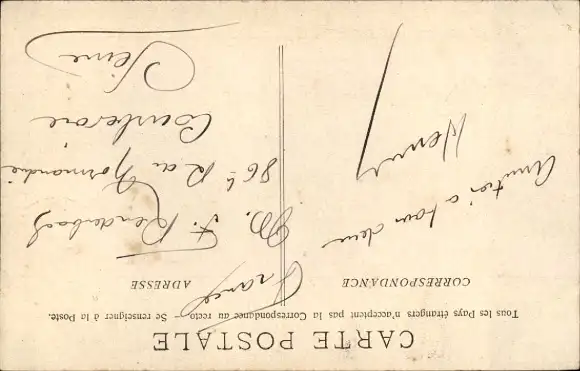 CARTE POSTALE
Tous les Pays étrangers n'acceptent pas la Correspondance au recto — Se renseigner à la Poste.
CORRESPONDANCE
ADRESSE
Amitiés à tous deux
Henri
France
M. F. Rendenbach
86 b R de Normandie
Courbevoie
Seine